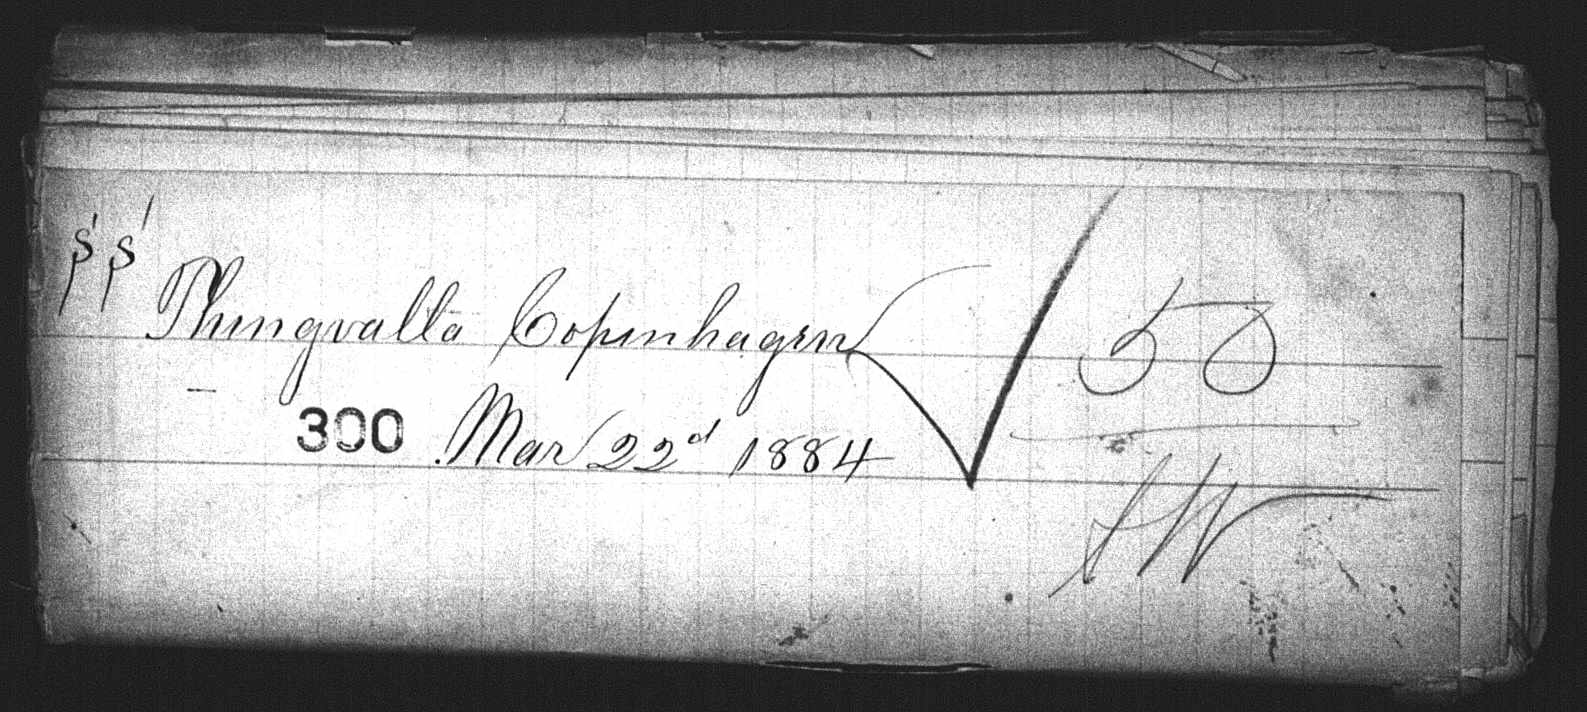 SS Thingvalla Copenhagen
50
300 Mar 22d 1884